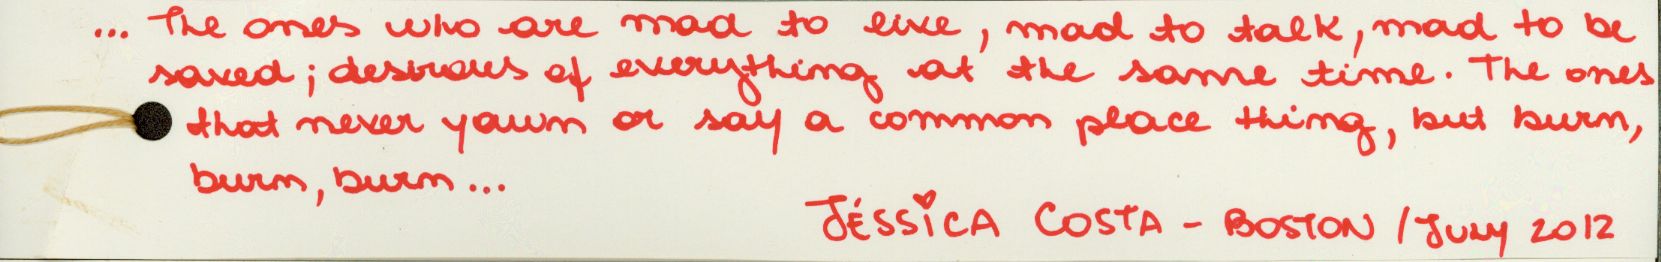 ... The ones who are mad to live, mad to talk, mad to be
saved; desirous of everything at the same time. The ones
that never yawn or say a common place thing, but burn,
burn, burn...
JÉSSICA COSTA - BOSTON / July 2012